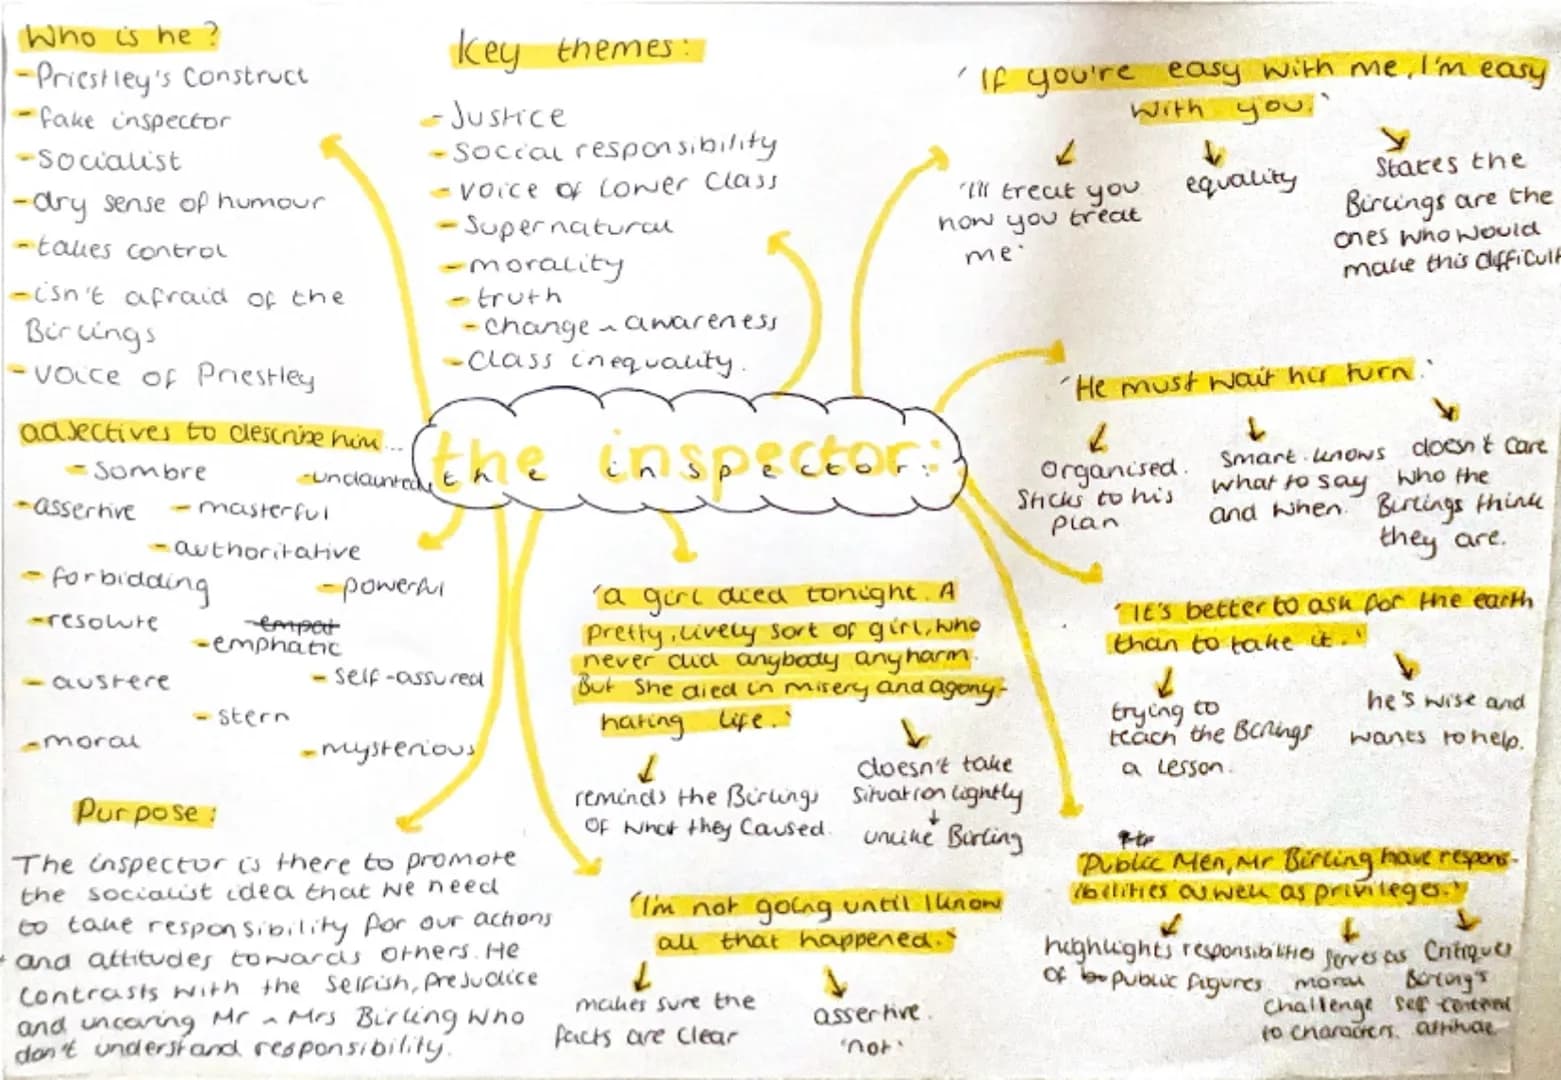 Who is he?
-Priestley's Construct
-fake inspector
-Socialist
-dry sense of humour
-takes control
-isn't afraid of the
Birlings
-voice of Priestley
Key themes:
-Justice
-Social responsibility
-voice of Lower Class
-Supernatural
-morality
-truth
-change ~ awareness
-Class inequality.
'If you're easy with me, I'm easy
with you.'
'I'll treat you
how you treat
me'
equality
States the
Birlings are the
ones who would
make this difficult
'He must wait his turn.'
Organised.
Sticks to his
plan
Smart. knows
what to say
and when.
doesn't care
who the
Birlings think
they are.
adjectives to describe him...
-Sombre
-undaunted
-assertive
-masterful
-authoritative
-forbidding
-powerful
-resolute
-emphatic
-austere
-self-assured
-stern
-moral
-mysterious
the inspector:
the inspector:
'a girl died tonight. A
pretty, lively sort of girl, who
never did anybody any harm.
But she died in misery and agony-
hating life.'
reminds the Birlings
of what they caused.
doesn't take
situation lightly
unlike Birling
'It's better to ask for the earth
than to take it.'
trying to
teach the Birlings
a lesson.
he's wise and
wants to help.
Purpose:
The inspector is there to promote
the socialist idea that we need
to take responsibility for our actions
and attitudes towards others. He
contrasts with the selfish, prejudice
and uncaring Mr ~ Mrs Birling who
don't understand responsibility.
'I'm not going until I know
all that happened.'
makes sure the
facts are clear
assertive.
'not'
'Public Men, Mr Birling have respons-
ibilities as well as privileges.'
highlights responsibilities
of public figures
serves as
moral
challenge
to characters.
Critiques
Birling's
self centered
attitude